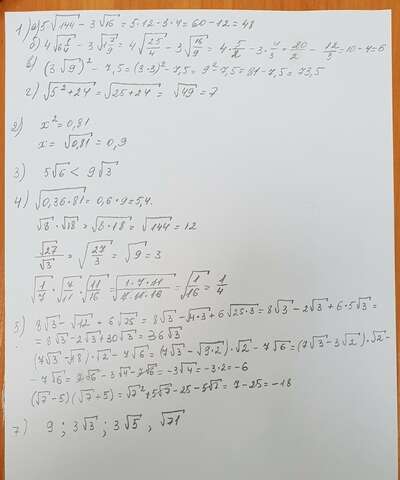 1) а) 5√144 - 3√16 = 5·12 - 3·4 = 60 - 12 = 48
б) 4√6 1/4 - 3√1 7/9 = 4√25/4 - 3√16/9 = 4·5/2 - 3·4/3 = 20/2 - 12/3 = 10 - 4 = 6
в) (3√9)² - 7,5 = (3·3)² - 7,5 = 9² - 7,5 = 81 - 7,5 = 73,5
г) √5²+24 = √25+24 = √49 = 7
2) x² = 0,81
x = √0,81 = 0,9
3) 5√6 < 9√3
4) √0,36·81 = 0,6·9 = 5,4
√8·√18 = √8·18 = √144 = 12
√27/√3 = √27/3 = √9 = 3
√1/7·√7/11·√11/16 = √1·7·11/7·11·16 = √1/16 = 1/4
5) 8√3 - √12 + 6√25 = 8√3 - √4·3 + 6√25·3 = 8√3 - 2√3 + 6·5√3 =
= 8√3 - 2√3 + 30√3 = 36√3
(7√3 - √18)·√2 - 7√6 = (7√3 - √9·2)·√2 - 7√6 = (7√3 - 3√2)·√2 -
- 7√6 = 7√6 - 3√4 - 7√6 = -3√4 = -3·2 = -6
(√7-5)(√7+5) = √7² + 5√7 - 25 - 5√7 = 7 - 25 = -18
7) 9 ; 3√3 ; 3√5 , √71